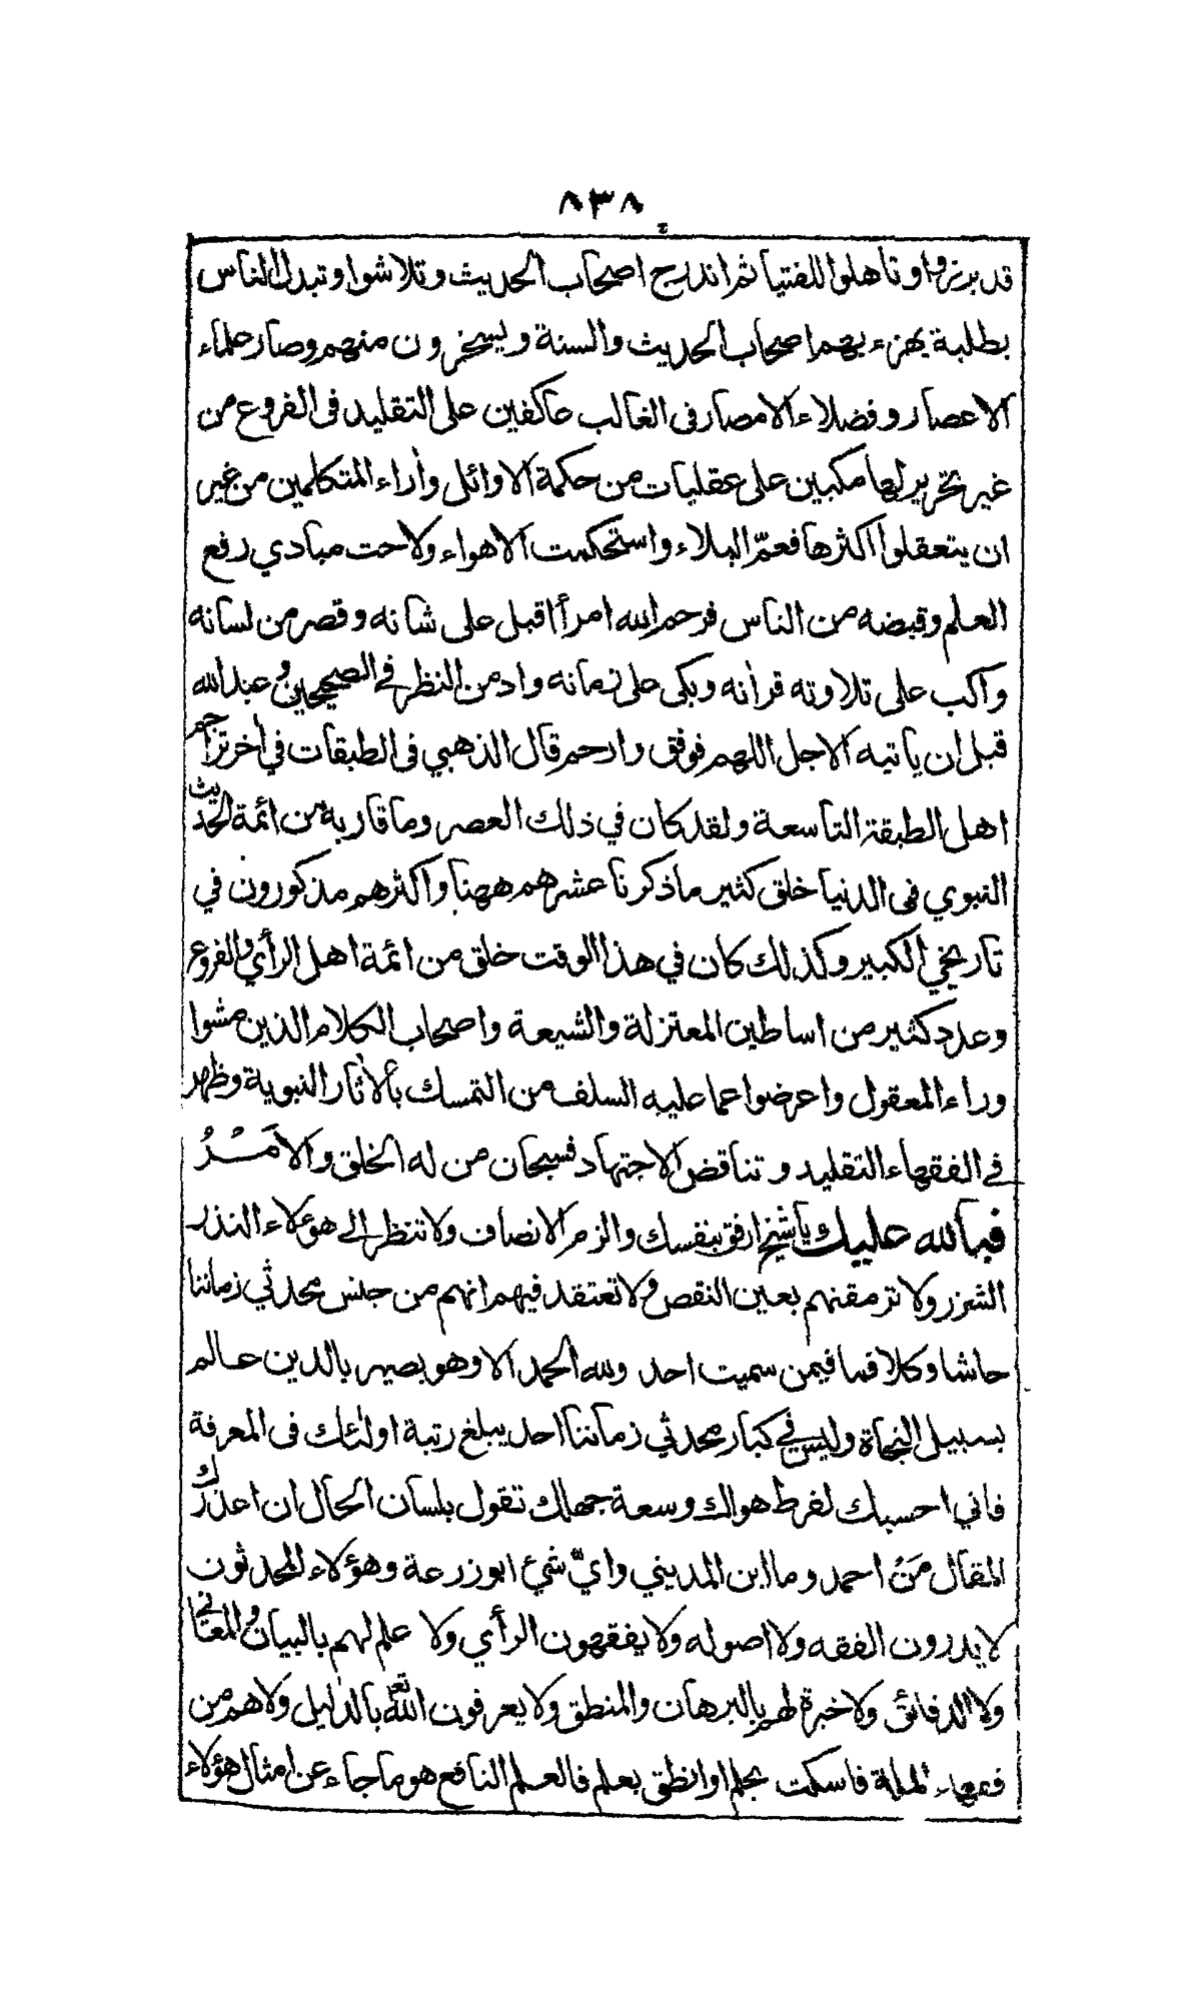 ٨٣٨
قد برزوا وتأهلوا للفتيا ثم اندرج اصحاب الحديث وتلاشوا وتبدل الناس
بطلبة يهزء بهم اصحاب الحديث والسنة ويسخرون منهم وصار علماء
الاعصار وفضلاء الامصار في الغالب عاكفين على التقليد في الفروع من
غير تحرير لها مكبين على عقليات من حكمة الاوائل وأراء المتكلمين من غير
ان يتعقلوا اكثرها فعمّ البلاء واستحكمت الاهواء ولاحت مبادي رفع
العلم وقبضه من الناس فرحم الله امرأ اقبل على شانه وقصر من لسانه
واكب على تلاوته قرأنه وبكى على زمانه وادمن النظر في الصحيحين وعبد الله
قبل ان ياتيه الاجل اللهم فوفق وارحم قال الذهبي في الطبقات في أخر تراجم
اهل الطبقة التاسعة ولقد كان في ذلك العصر وما قاربه من ائمة الحديث
النبوي في الدنيا خلق كثير ما ذكرنا عشرهم ههنا واكثرهم مذكورون في
تاريخي الكبير وكذلك كان في هذا الوقت خلق من ائمة اهل الرأي والفروع
وعدد كثير من اساطين المعتزلة والشيعة واصحاب الكلام الذين مشوا
وراء المعقول واعرضوا عما عليه السلف من التمسك بالأثار النبوية وظهر
في الفقهاء التقليد وتناقض الاجتهاد فسبحان من له الخلق والأمْرُ
فبالله عليك يا شيخ ارفق بنفسك والزم الانصاف ولا تنظر الى هؤلاء النذر
الشزر ولا ترمقنهم بعين النقص ولا تعتقد فيهم انهم من جنس محدثي زماننا
حاشا وكلا فما فيمن سميت احد ولله الحمد الا وهو بصير بالدين عالم
بسبيل النجاة وليس في كبار محدثي زماننا احد يبلغ رتبة اولئك في المعرفة
فاني احسبك لفرط هواك وسعة جهلك تقول بلسان الحال ان اعذرك
المقال مَنْ احمد وما ابن المديني وايّ شئ ابو زرعة وهؤلاء المحدثون
لا يدرون الفقه ولا اصوله ولا يفقهون الرأي ولا علم لهم بالبيان والمعاني
ولا الدقائق ولا خبرة لهم بالبرهان والمنطق ولا يعرفون الله تع بالدليل ولا هم من
فقهاء الملة فاسكت بحلم او انطق بعلم فالعلم النافع هو ما جاء عن امثال هؤلاء